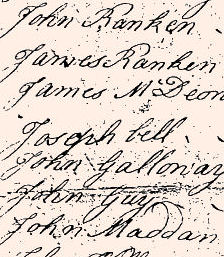 John Ranken
James Ranken
James McDeon
Joseph bell
John Galloway
John Guy
John Maddan
John